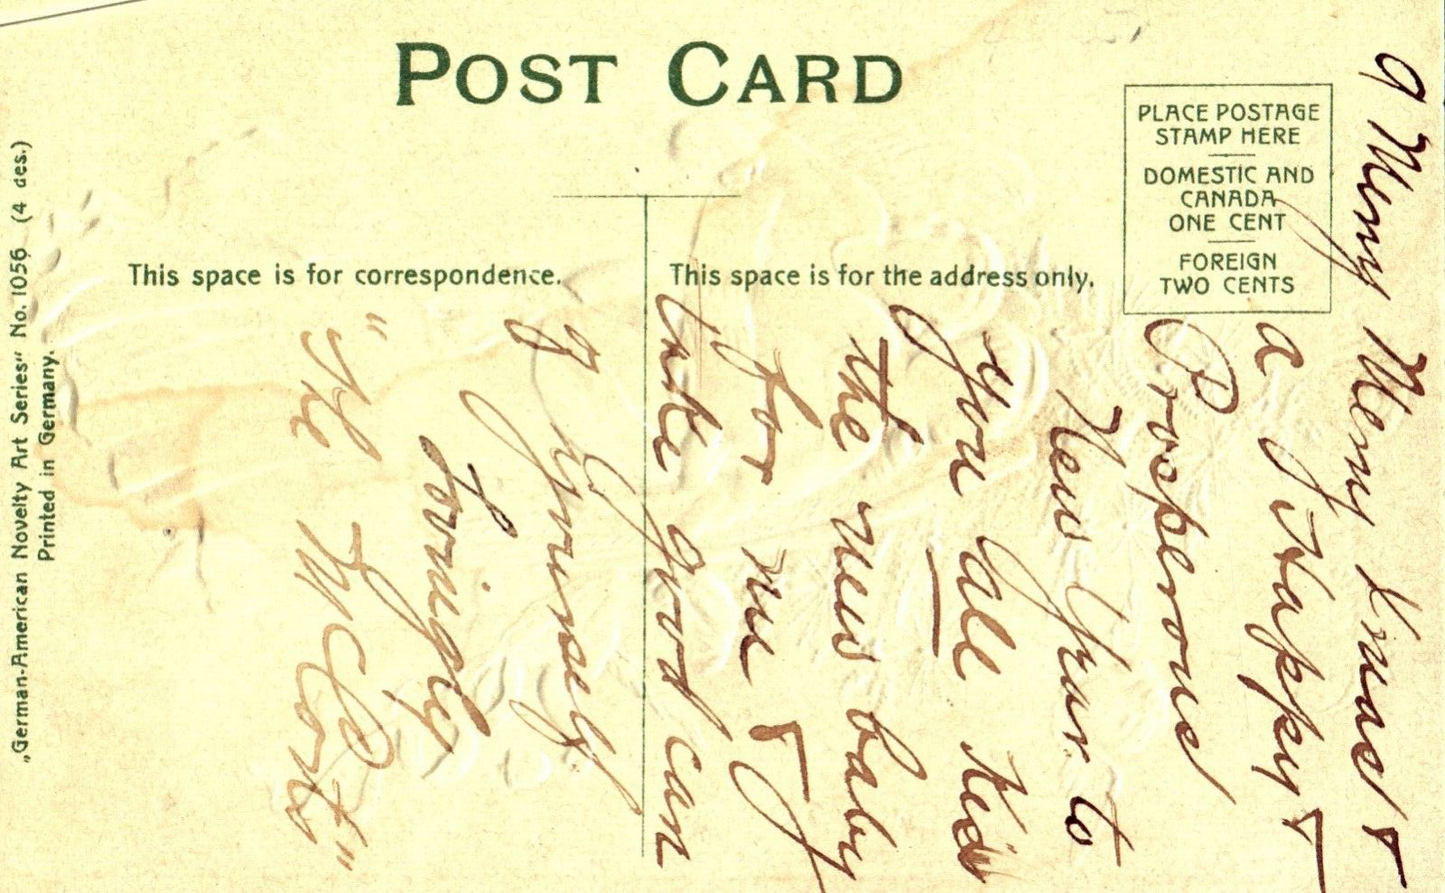 POST CARD
PLACE POSTAGE
STAMP HERE
DOMESTIC AND
CANADA
ONE CENT
FOREIGN
TWO CENTS
This space is for correspondence.
This space is for the address only.
„German-American Novelty Art Series“ No. 1056 (4 des.)
Printed in Germany.
A Merry Merry Xmas +
a Happy +
Prosperous
New Year to
you all Kiss
the new baby
for me +
take good care
of yourself
Lovingly
"The McCorts"